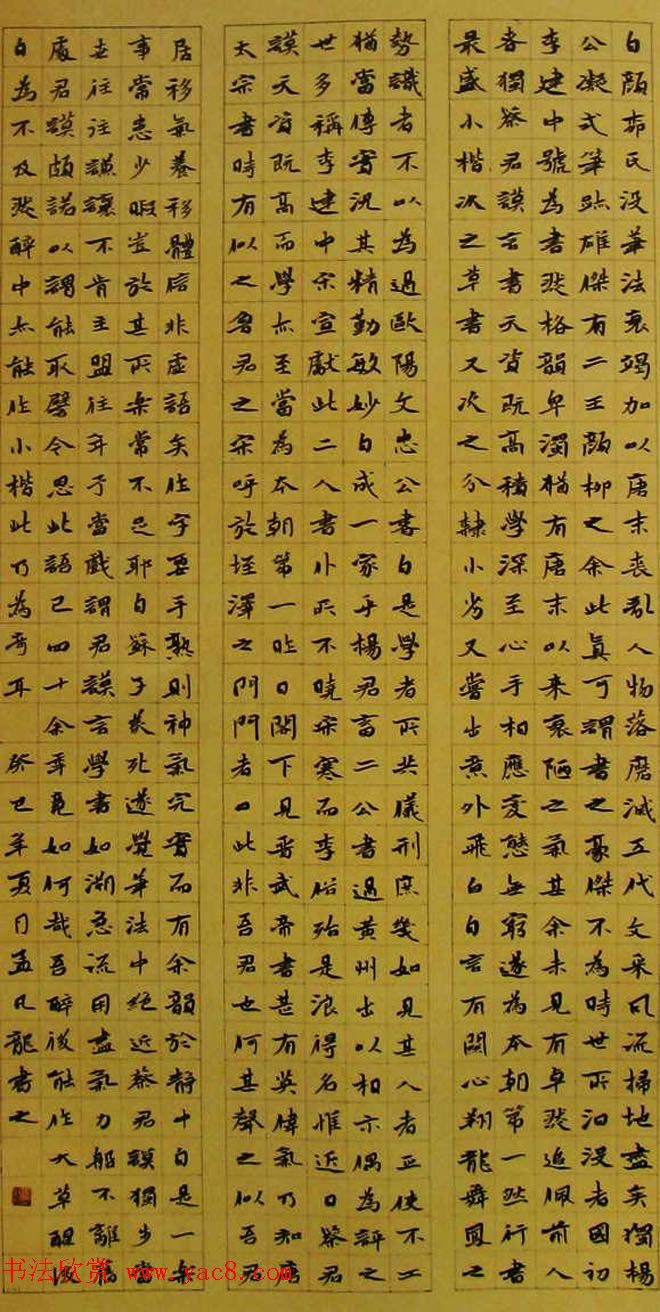 自顔柳氏没筆法衰竭加以唐末丧亂人物落磨減五代文采風流掃地盡矣獨楊
公凝式筆跡雄傑有二王顔柳之余此真可謂書之豪傑不為時世所汩没者國初
李建中號為書然格韻卑濁猶有唐末以來衰陋之氣其余未見有卓然追佩前人
者獨蔡君謨書天資既高積學深至心手相應变態無窮遂為本朝第一然行書
最盛小楷次之草書又次之分隸小劣又嘗出意外飛白自言有闕心翔龍舞鳳之
勢識者不以為過歐陽文忠公書自是學者所共儀刑庶幾如見其人者正使不工
猶當傳寶況其精勤敏妙自成一家乎楊君畜二公書過黄州出以相示偶為評之
世多稱李建中宋宣獻此二人書仆所不曉宋寒而李俗殆是浪得名惟近日蔡君
謨天資既高而學亦至當為本朝第一昨日閣下見晋武帝書甚有英偉氣乃知唐
太宗書時有似之魯君之宋呼於垤澤之門門者曰此非吾君也何其聲之似吾君
居移氣養移體信非虚語矣作字要手熟則神氣完實而有余韻於静中自是一樂
事常患少暇豈於其所樂常不足耶自蘇子美死遂覺筆法中絶近蔡君謨獨步當
世往往謙讓不肯主盟往年予嘗戲謂君謨言學書如溯急流用盡氣力船不離舊
處君謨頗諾以謂能取譬今思此語已四十余年竟如何哉吾醉後能作大草醒後
自為不及然醉中亦能作小楷此乃為奇耳 癸巳年夏月孟凡龍書之
书法欣赏 www.yac8.com